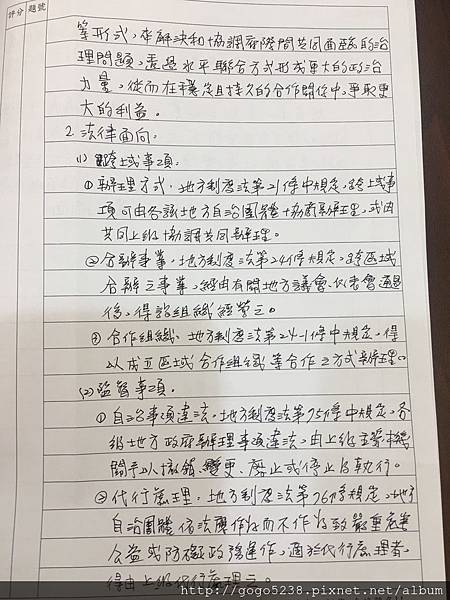 評分 題號
等形式，來解決和協調府際間共同面臨的治
理問題，透過水平聯合方式形成更大的政治
力量，從而在穩定且持久的合作關係中，爭取更
大的利益。
2. 法律面向：
(1) 跨域事項：
①辦理方式：地方制度法第21條中規定，跨域事
項可由各該地方自治團體協商辦理，或由
共同上級協調共同辦理。
②合辦事業：地方制度法第24條規定，跨區域
合辦之事業，經由有關地方議會、代表會通過
後，得設組織經營之。
③合作組織：地方制度法第24-1條中規定，得
以成立區域合作組織等合作之方式辦理。
(2) 監督事項：
①自治事項違法：地方制度法第75條中規定，各
級地方政府辦理事項違法，由上級主管機
關予以撤銷、變更、廢止或停止其執行。
②代行處理：地方制度法第76條規定，地方
自治團體依法應作為而不作為致嚴重危害
公益或防礙政務運作，適於代行處理者，
得由上級代行處理之。
http://gogo5238.pixnet.net/album